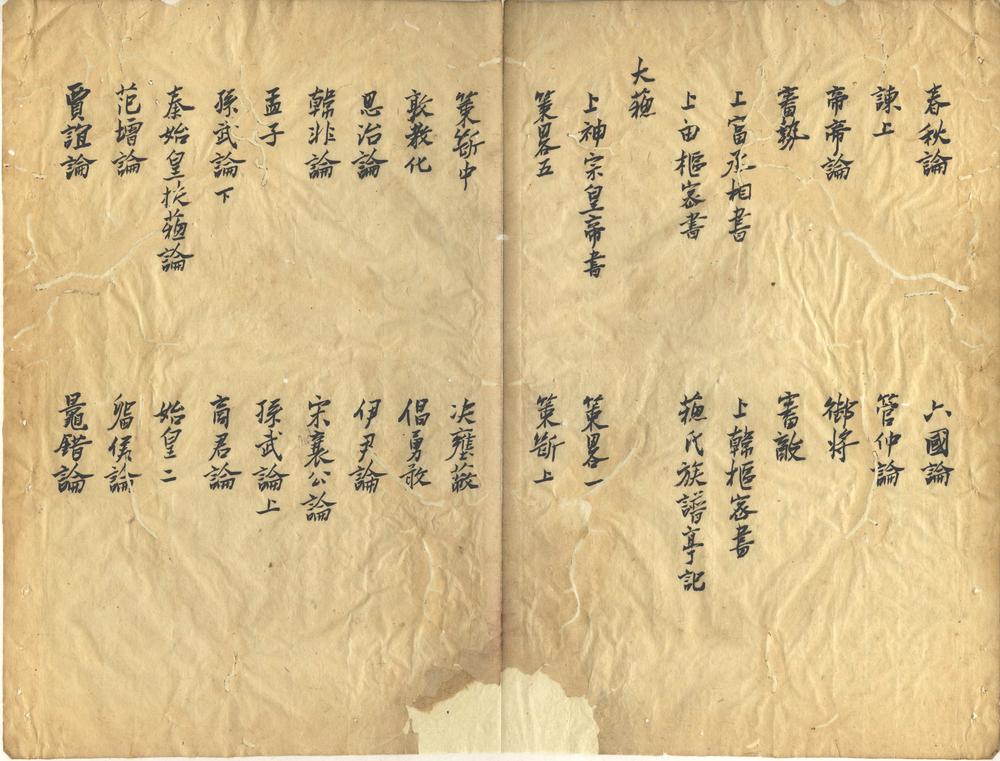 春秋論
六國論
諫上
管仲論
帝帝論
御將
審勢
審敵
上富丞相書
上韓樞密書
上田樞密書
蘓氏族譜亭記
大蘓
上神宗皇帝書
策畧一
策畧五
策斷上
策斷中
决壅蔽
敦教化
倡勇敢
思治論
伊尹論
韓非論
宋襄公論
孟子
孫武論上
孫武論下
商君論
秦始皇扶蘓論
始皇二
范增論
留侯論
賈誼論
鼂錯論